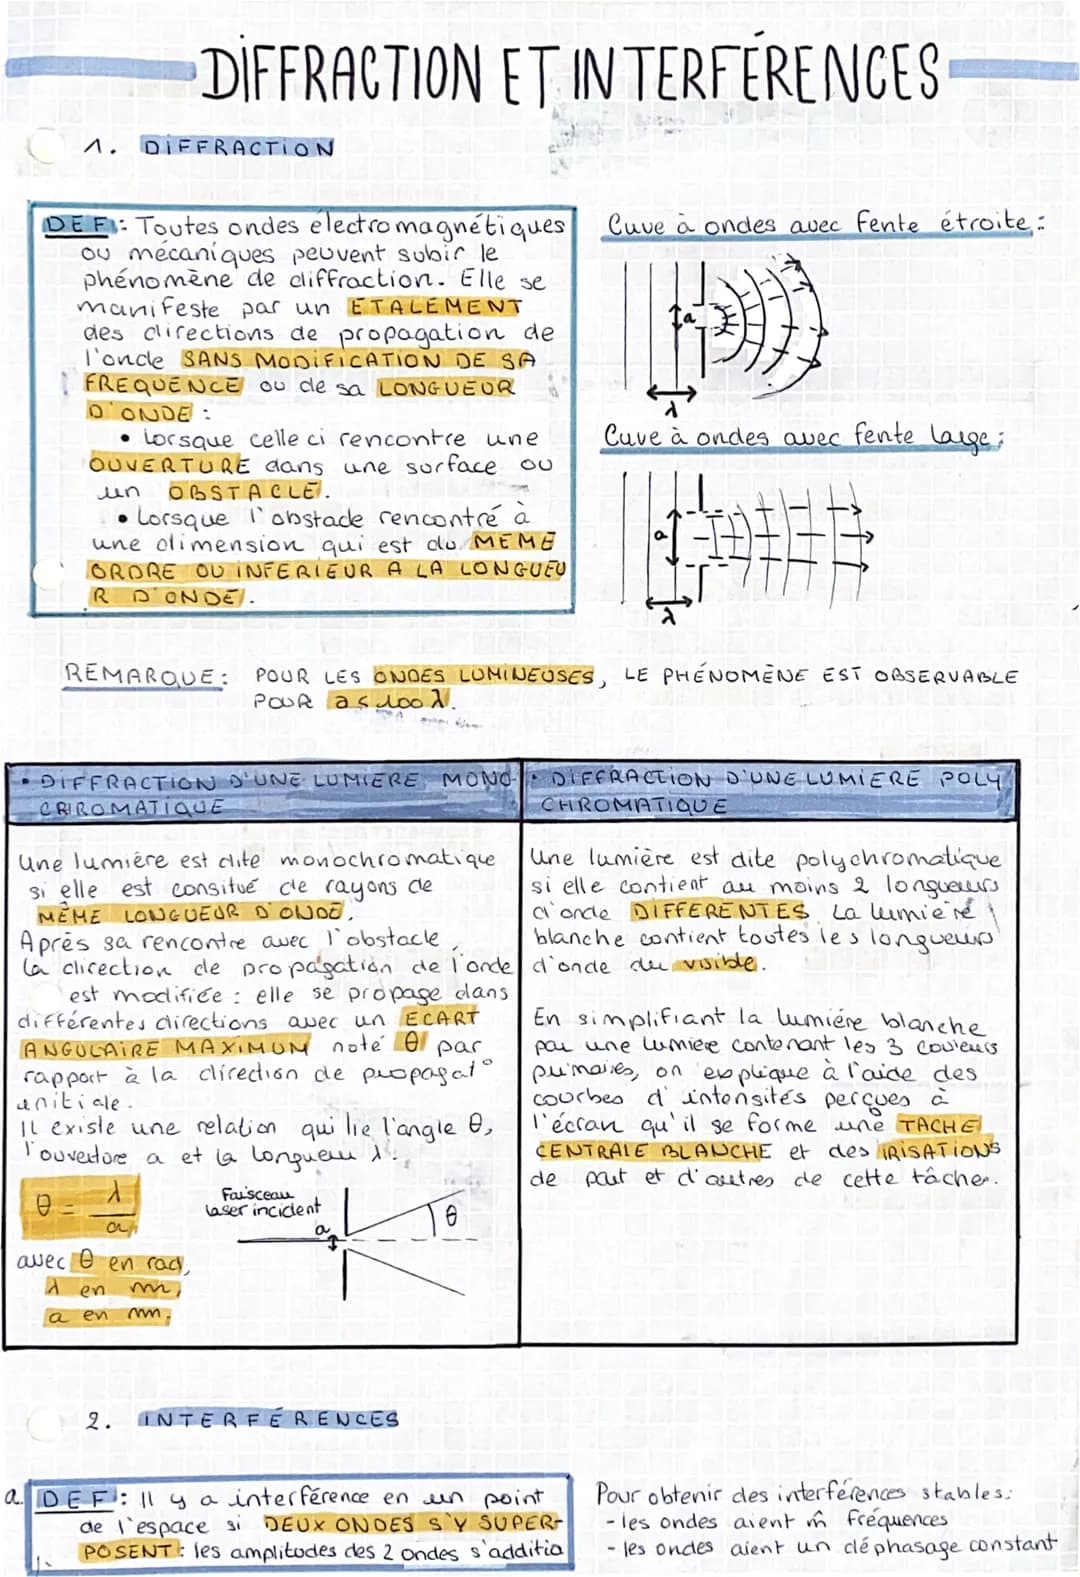 DIFFRACTION ET INTERFÉRENCES
1. DIFFRACTION
DEF: Toutes ondes électromagnétiques
ou mécaniques peuvent subir le
phénomène de diffraction. Elle se
manifeste par un ETALEMENT
des directions de propagation de
l'onde SANS MODIFICATION DE SA
FREQUENCE ou de sa LONGUEUR
D'ONDE :
• Lorsque celle ci rencontre une
OUVERTURE dans une surface ou
un OBSTACLE.
• Lorsque l'obstacle rencontré à
une dimension qui est du MEME
ORDRE OU INFERIEUR A LA LONGUEU
R D'ONDE.
Cuve à ondes avec fente étroite :
a
λ
Cuve à ondes avec fente large :
a
λ
REMARQUE: POUR LES ONDES LUMINEUSES, LE PHÉNOMÈNE EST OBSERVABLE
POUR a ≤ 100 λ.
• DIFFRACTION D'UNE LUMIERE MONO-
CRIROMATIQUE
une lumière est dite monochromatique
si elle est consitué de rayons de
MÊME LONGUEUR D'ONDE.
Après sa rencontre avec l'obstacle,
la direction de propagation de l'onde
est modifiée : elle se propage dans
différentes directions avec un ECART
ANGULAIRE MAXIMUM noté θ par
rapport à la direction de propagat°
initiale.
Il existe une relation qui lie l'angle θ,
l'ouverture a et la longueur λ.
θ = λ
a
avec θ en rad,
λ en m,
a en m.
Faisceau
laser incident
a
θ
• DIFFRACTION D'UNE LUMIERE POLY
CHROMATIQUE
Une lumière est dite polychromatique
si elle contient au moins 2 longueurs
d'onde DIFFERENTES. La lumière
blanche contient toutes les longueurs
d'onde du visible.
En simplifiant la lumière blanche
par une lumière contenant les 3 couleurs
primaires, on explique à l'aide des
courbes d'intensités perçues à
l'écran qu'il se forme une TACHE
CENTRALE BLANCHE et des IRISATIONS
de part et d'autres de cette tâche.
2. INTERFÉRENCES
a. DEF : Il y a interférence en un point
de l'espace si DEUX ONDES S'Y SUPER-
POSENT : les amplitudes des 2 ondes s'additio
Pour obtenir des interférences stables:
- les ondes aient m̂ fréquences
- les ondes aient un déphasage constant